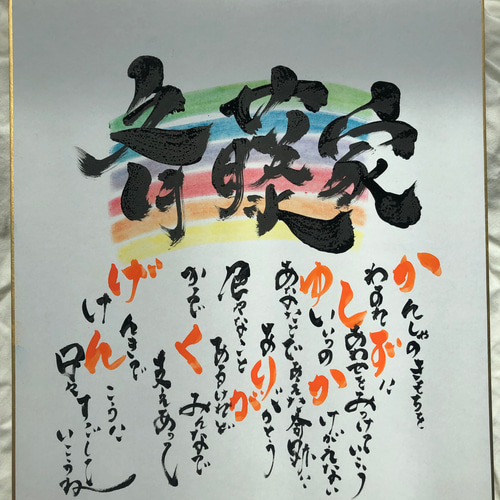 斉藤家
かんしゃのきもちを
わすれずに
しあわせをみつけていこう
ゆいいつのかけがえない
あなたとであえた奇跡に
ありがとう
色々なこと
あるけれど
かぞくみんなで
支えあって
げんきで
けんこうに
日々すごして
いこうね